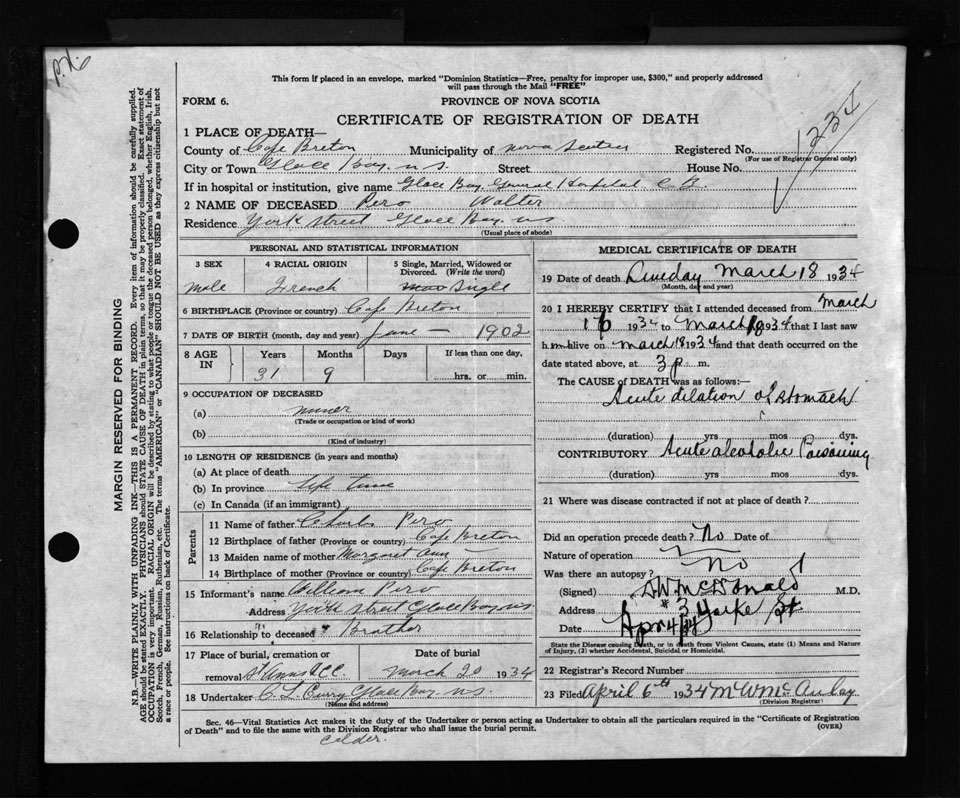 This form if placed in an envelope, marked "Dominion Statistics—Free, penalty for improper use, $300," and properly addressed
will pass through the Mail "FREE"
FORM 6.
PROVINCE OF NOVA SCOTIA
CERTIFICATE OF REGISTRATION OF DEATH
1234
1 PLACE OF DEATH—
County of Cape Breton Municipality of Nova Scotia Registered No.
(For use of Registrar General only)
City or Town Glace Bay, N.S. Street House No.
If in hospital or institution, give name Glace Bay General Hospital C.B.
2 NAME OF DECEASED Pero Walter
Residence York Street Glace Bay, N.S.
(Usual place of abode)
MARGIN RESERVED FOR BINDING
N.B.—WRITE PLAINLY WITH UNFADING INK—THIS IS A PERMANENT RECORD. Every item of information should be carefully supplied.
AGE should be stated EXACTLY. PHYSICIANS should STATE CAUSE OF DEATH in plain terms, so that it may be properly classified. Exact statement of
OCCUPATION is very important. RACIAL ORIGIN will be described by stating to what people or tongue the deceased person belonged, whether English, Irish,
Scotch, French, German, Russian, Ruthenian, etc. The terms "AMERICAN" or "CANADIAN" SHOULD NOT BE USED as they express citizenship but not
a race or people. See instructions on back of Certificate.
PERSONAL AND STATISTICAL INFORMATION
3 SEX
4 RACIAL ORIGIN
5 Single, Married, Widowed or
Divorced. (Write the word)
Male French Single
6 BIRTHPLACE (Province or country) Cape Breton
7 DATE OF BIRTH (month, day and year) June — 1902
8 AGE
IN
Years Months Days If less than one day,
31 9
hrs. or min.
9 OCCUPATION OF DECEASED
(a) miner
(Trade or occupation or kind of work)
(b)
(Kind of industry)
10 LENGTH OF RESIDENCE (in years and months)
(a) At place of death
(b) In province life time
(c) In Canada (if an immigrant)
Parents
11 Name of father Charles Pero
12 Birthplace of father (Province or country) Cape Breton
13 Maiden name of mother Margaret Ann —
14 Birthplace of mother (Province or country) Cape Breton
15 Informant's name William Pero
Address York Street Glace Bay N.S.
16 Relationship to deceased Brother
17 Place of burial, cremation or
removal St Anns R.C.
Date of burial
March 20 1934
18 Undertaker C. L. Curry Glace Bay, N.S.
(Name and address)
MEDICAL CERTIFICATE OF DEATH
19 Date of death Sunday March 18 1934
(Month, day and year)
20 I HEREBY CERTIFY that I attended deceased from March
16 1934 to March 18 1934 that I last saw
him alive on March 18 1934 and that death occurred on the
date stated above, at 3 p m.
The CAUSE OF DEATH was as follows:—
Acute dilation of stomach
(duration) yrs mos dys.
CONTRIBUTORY Acute alcoholic Poisoning
(duration) yrs mos dys.
21 Where was disease contracted if not at place of death?
Did an operation precede death? No Date of
Nature of operation
Was there an autopsy? No
(Signed) D.W. McDonald M.D.
Address # 3 Yorke St
Date Apr 4/34
State the Disease causing Death, or in death from Violent Causes, state (1) Means and Nature
of Injury, (2) whether Accidental, Suicidal or Homicidal.
22 Registrar's Record Number
23 Filed April 6th 1934 McAulay
(Division Registrar)
Sec. 46—Vital Statistics Act makes it the duty of the Undertaker or person acting as Undertaker to obtain all the particulars required in the "Certificate of Registration
of Death" and to file the same with the Division Registrar who shall issue the burial permit.
(OVER)
Calder.